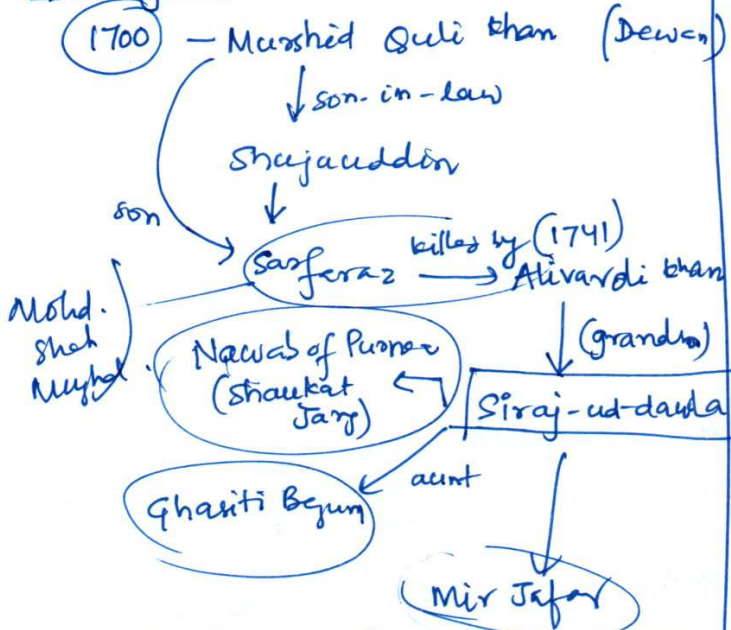 1700 – Murshid Quli Khan (Dewan)
son-in-law
Shujauddin
son
Sarferaz killed by (1741) Alivardi Khan
Mohd.
Shah
Mughal
(grandson)
Nawab of Purnea
(Shaukat
Jang)
Siraj-ud-daula
aunt
Ghasiti Begum
Mir Jafar